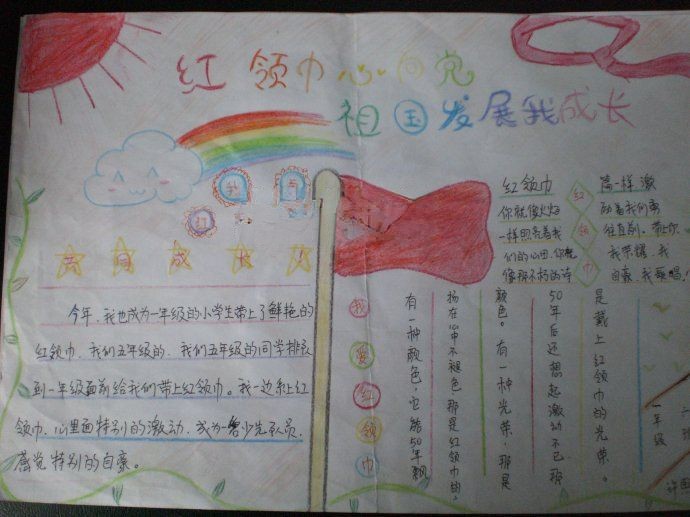 红领巾心向党
祖国发展我成长
我与
们
共同成长！
今年，我也成为一年级的小学生带上了鲜艳的
红领巾，我们五年级的，我们五年级的同学排
到一年级面前给我们带上红领巾。我一边系上红
领巾，心里面特别的激动，成为一名少先队员，
感觉特别的自豪。
红领巾
你就像火焰
一样照亮着我
们的心田，你就
像那不朽的诗
红领巾
篇一样激
励着我们勇
往直前。带上你
我荣耀，我
自豪，我歌唱！
我爱红领巾
有一种颜色，它能50年飘
扬在心中不褪色，那是红领巾的
颜色。有一种光荣，那是
50年后还想起激动不已，那
是戴上红领巾的光荣。
一年级